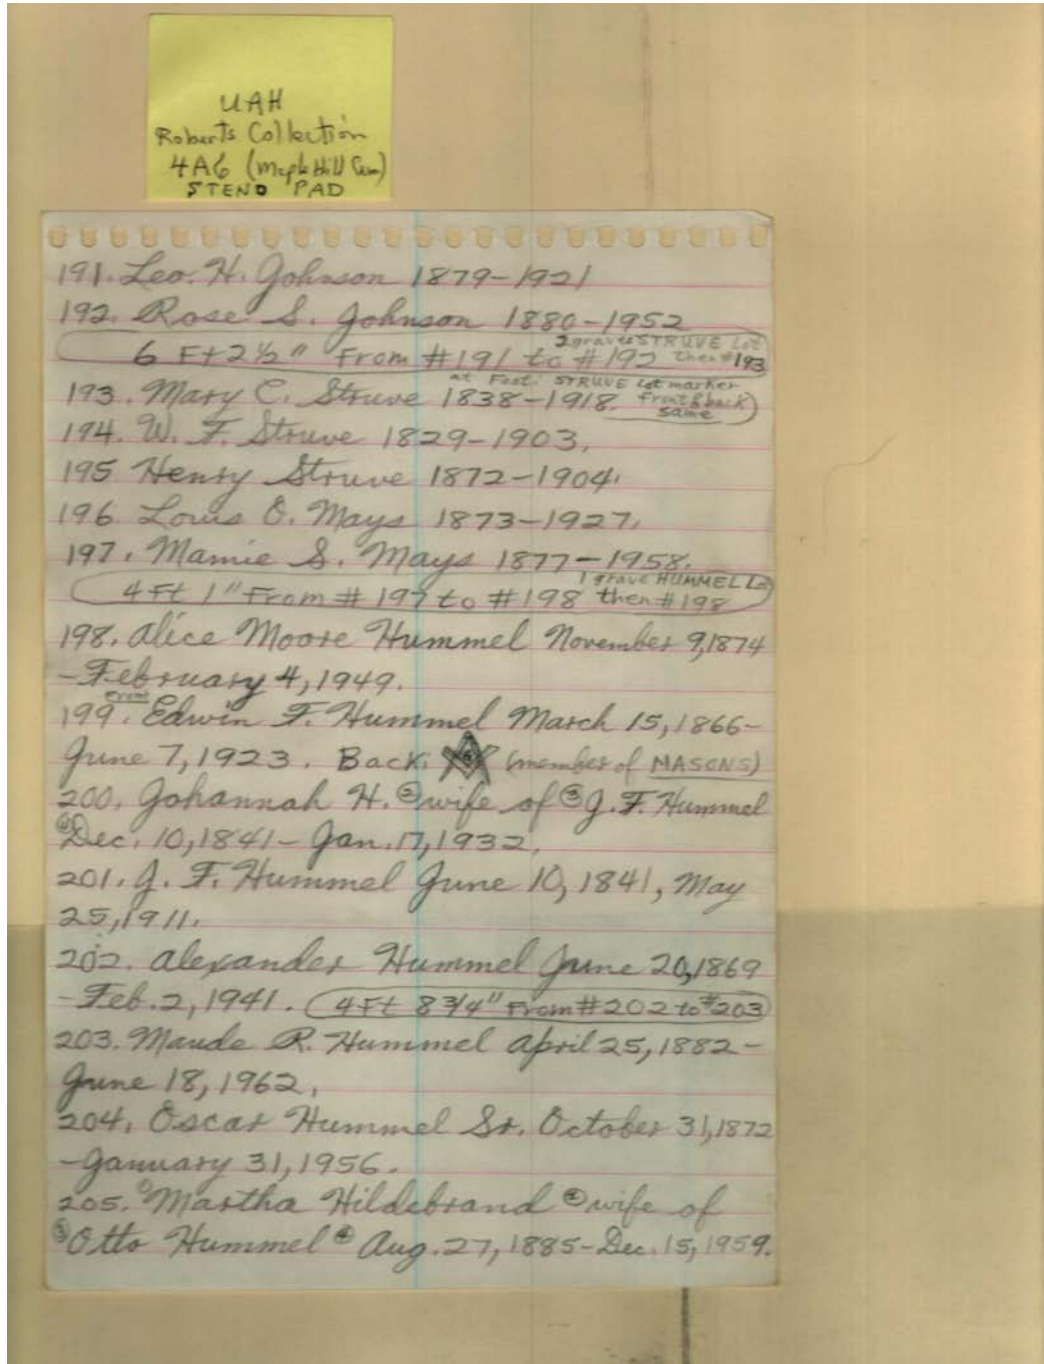 UAH
Roberts Collection
4A6 (Maple Hill Cem)
STENO PAD
191. Leo. H. Johnson 1879-1921
192. Rose S. Johnson 1880-1952
2 graves STRUVE Lot
6 Ft 2 1/2" From #191 to #192 then #193
at Foot: STRUVE Lot marker
193. Mary C. Struve 1838-1918. front & back
same
194. W. F. Struve 1829-1903.
195 Henry Struve 1872-1904.
196. Louis O. Mays 1873-1927.
197. Mamie S. Mays 1877-1958.
1 grave HUMMEL Lot
4 Ft 1" From #197 to #198 then #198
198. Alice Moore Hummel November 9, 1874
-February 4, 1949.
Front
199. Edwin F. Hummel March 15, 1866-
June 7, 1923. Back: G (member of MASONS)
200. Johannah H. ② wife of ③ J. F. Hummel
④ Dec. 10, 1841-Jan. 17, 1932.
201. J. F. Hummel June 10, 1841, May
25, 1911.
202. Alexander Hummel June 20, 1869
-Feb. 2, 1941. 4 Ft 8 3/4" From #202 to #203
203. Maude R. Hummel April 25, 1882-
June 18, 1962.
204. Oscar Hummel Sr. October 31, 1872
-January 31, 1956.
205. ① Martha Hildebrand ② wife of
③ Otto Hummel ④ Aug. 27, 1885-Dec. 15, 1959.